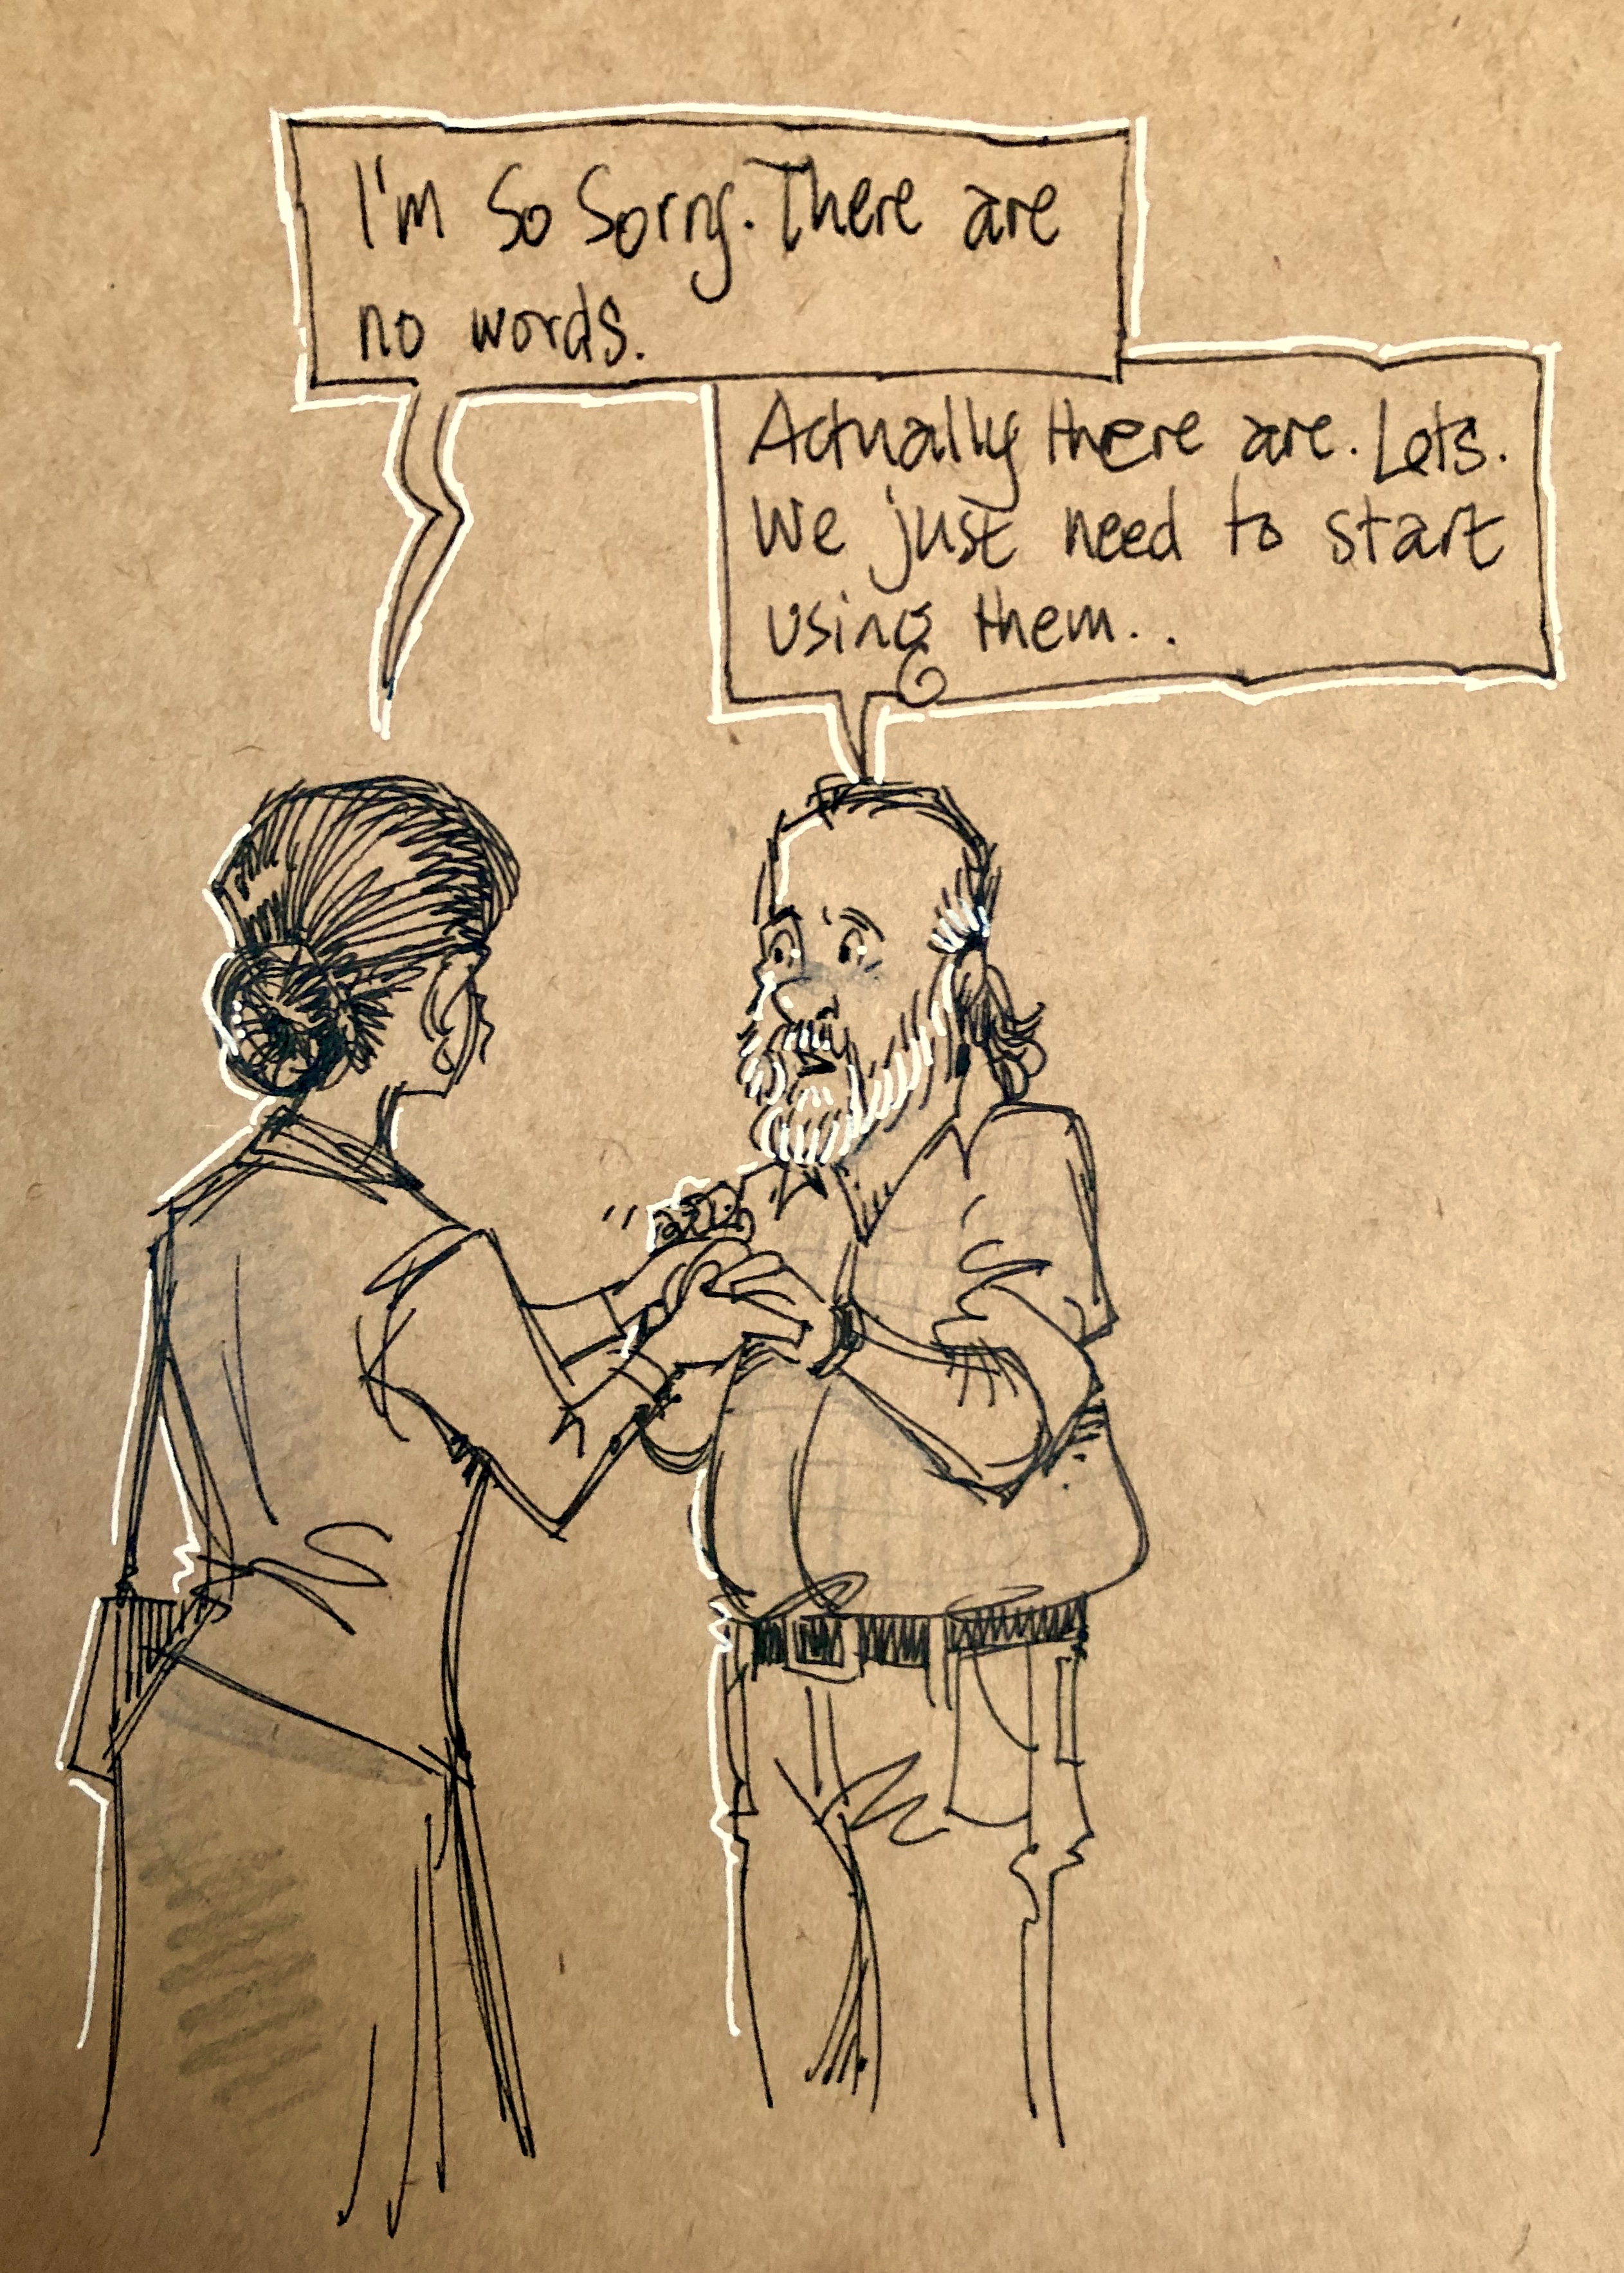 I'm so sorry. There are
no words.
Actually there are. Lots.
We just need to start
using them..